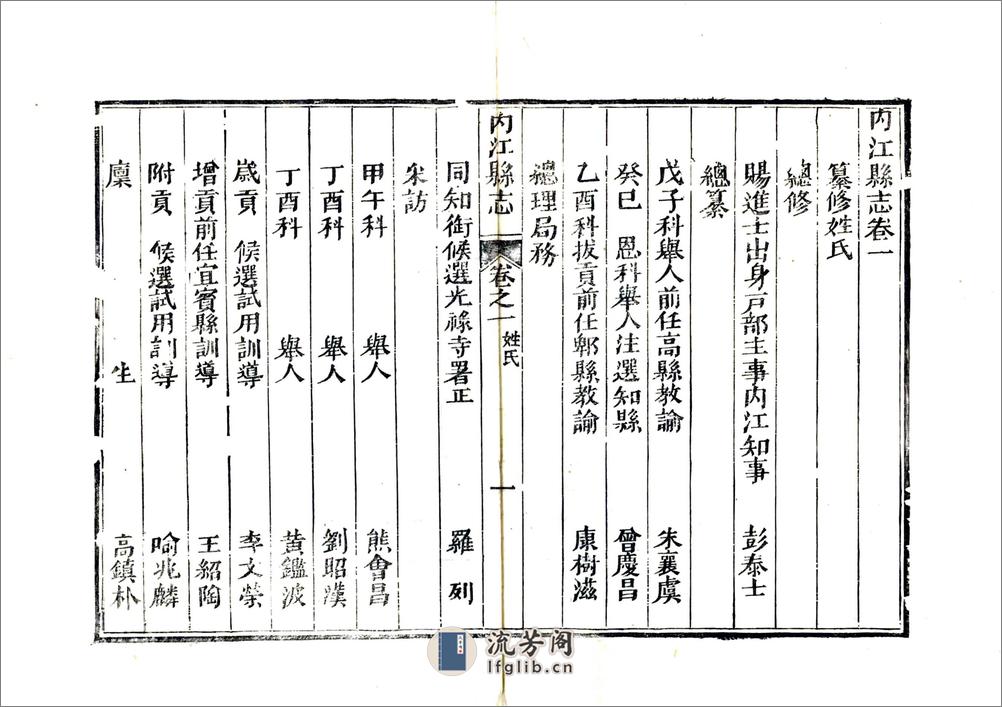 内江縣志卷一
纂修姓氏
總修
賜進士出身戸部主事内江知事 彭泰士
總纂
戊子科舉人前任高縣教諭 朱襄虞
癸巳 恩科舉人注選知縣 曾慶昌
乙酉科拔貢前任郫縣教諭 康樹滋
總理局務
内江縣志 卷之一 姓氏 一
同知銜候選光祿寺署正 羅列
采訪
甲午科 舉人 熊會昌
丁酉科 舉人 劉昭漢
丁酉科 舉人 黃鑑波
歲貢 候選試用訓導 李文榮
增貢前任宜賓縣訓導 王紹陶
附貢 候選試用訓導 喻兆麟
廩生 高鎮朴
流芳阁
lfglib.cn